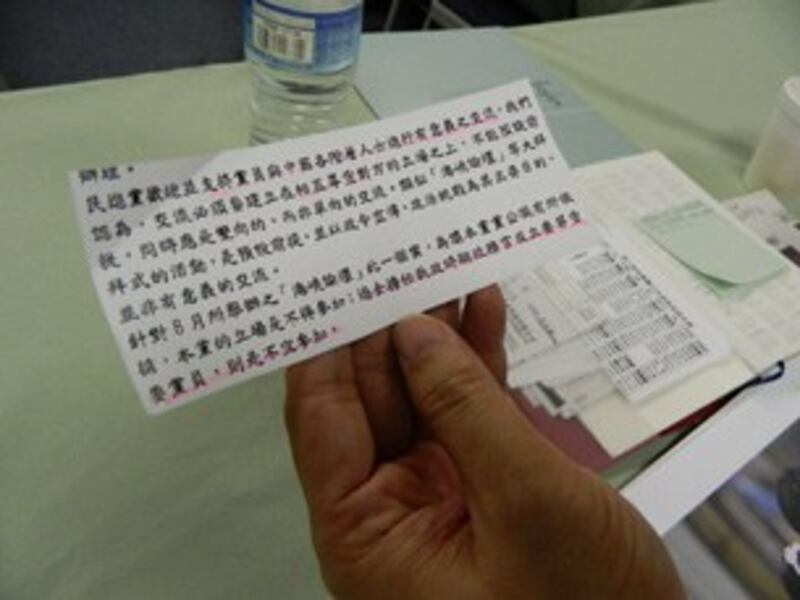 辦理。
民進黨歡迎並支持黨員與中國各階層人士進行有意義之交流，我們
認為，交流必須要建立在相互尊重對方的立場之上，不能預設前
提，同時應是雙向的，而非單向的交流。類似「海峽論壇」等大拜
拜式的活動，是預設前提，並以政令宣傳、政治統戰為其主要目的，
並非有意義的交流。
針對 8 月所舉辦之「海峽論壇」此一個案，為讓本黨黨公職有所依
循，本黨的立場是不得參加；過去擔任我政府期政務官及立委等重
要黨員，則是不宜參加。